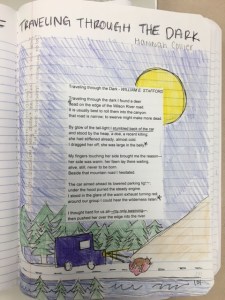 TRAVELING THROUGH THE DARK
Traveling through the Dark - WILLIAM E. STAFFORD
Traveling through the dark I found a deer
dead on the edge of the Wilson River road.
It is usually best to roll them into the canyon:
that road is narrow; to swerve might make more dead.
By glow of the tail-light I stumbled back of the car
and stood by the heap, a doe, a recent killing;
she had stiffened already, almost cold.
I dragged her off; she was large in the belly.
My fingers touching her side brought me the reason—
her side was warm; her fawn lay there waiting,
alive, still, never to be born.
Beside that mountain road I hesitated.
The car aimed ahead its lowered parking lights;
under the hood purred the steady engine.
I stood in the glare of the warm exhaust turning red;
around our group I could hear the wilderness listen.
I thought hard for us all—my only swerving—,
then pushed her over the edge into the river.